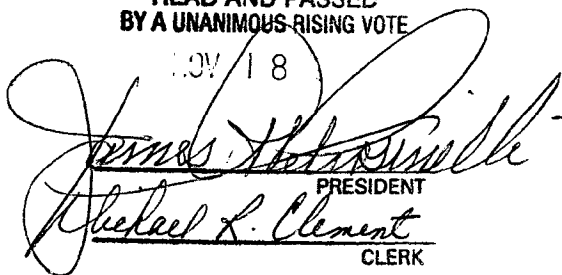 READ AND PASSED
BY A UNANIMOUS RISING VOTE
NOV 18
James
PRESIDENT
Michael R. Clement
CLERK